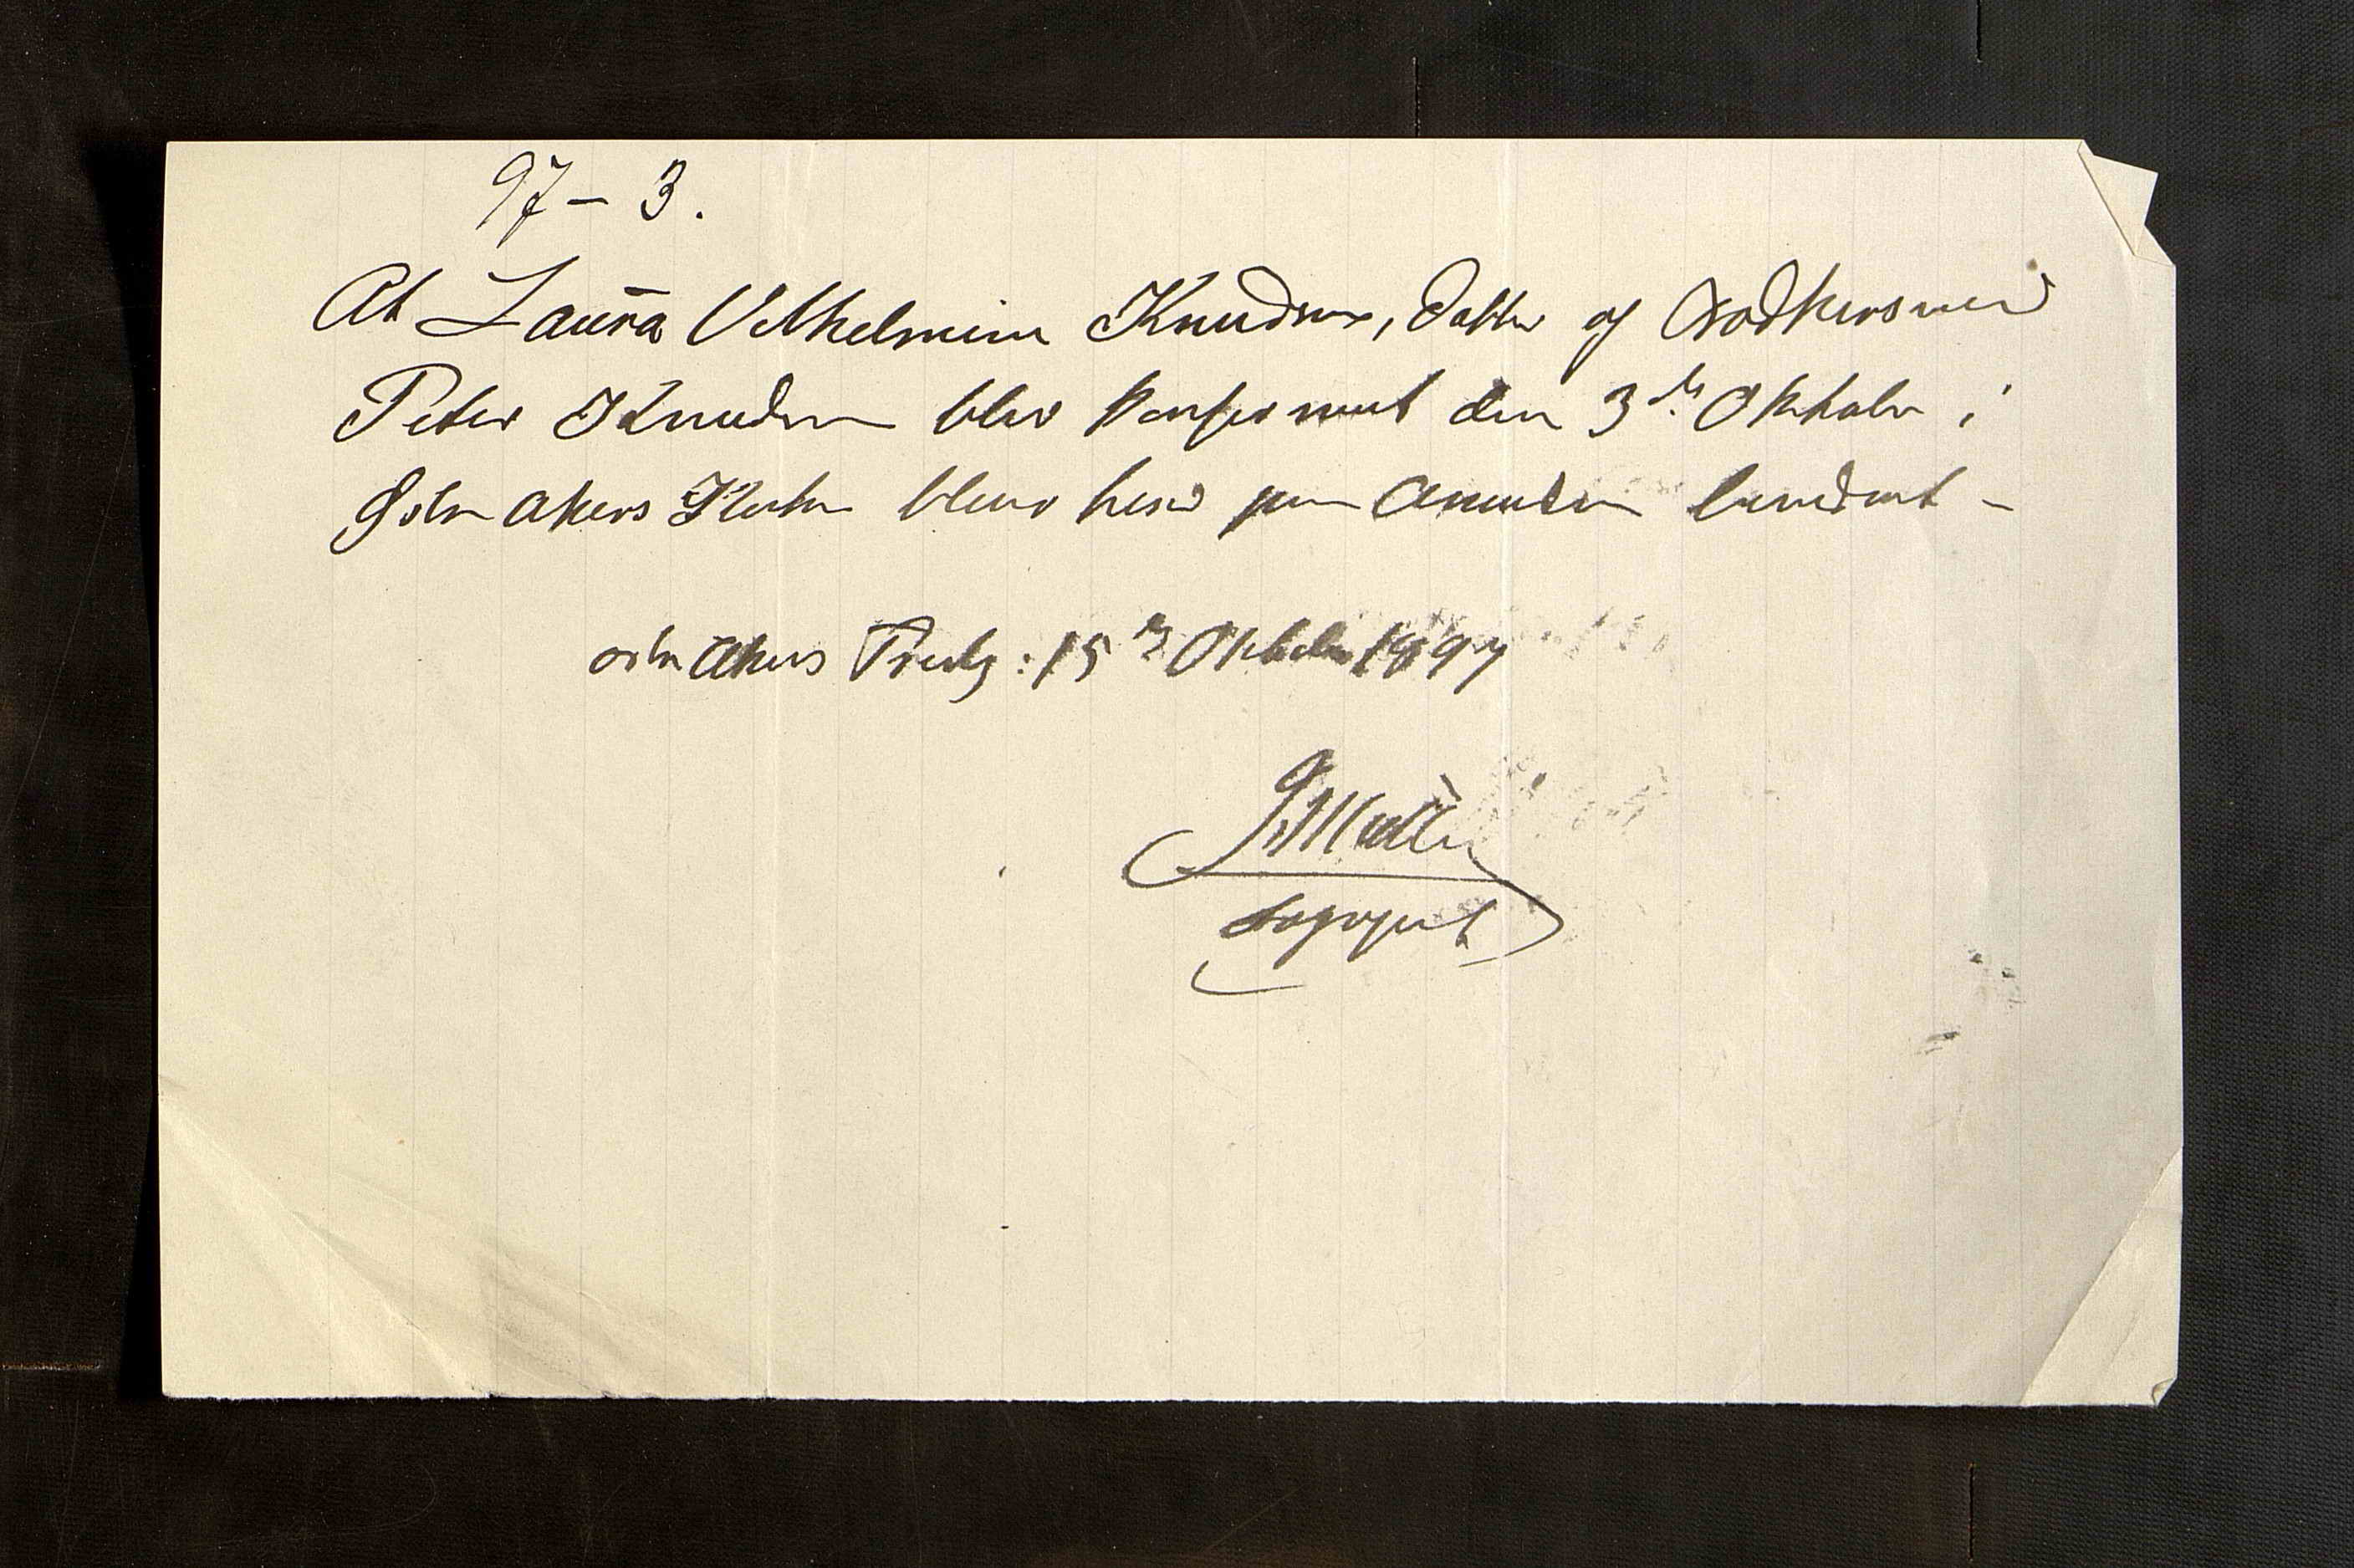 97 – 3.
At Laura Vilhelmine Knudsen, Datter af
Peter Knudsen blev konfirmert den 3die Oktober i
Østre Akers Kirke blever herved paa Anmodn bevidnet –
østre Akers Prestg: 15de Oktober 1897
Sogneprest